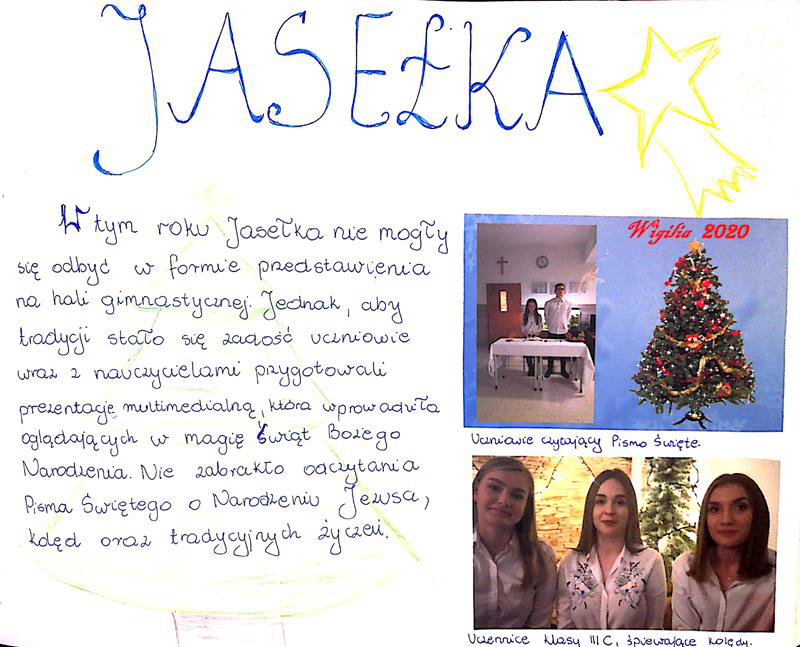 JASEŁKA
W tym roku Jasełka nie mogły
się odbyć w formie przedstawienia
na hali gimnastycznej. Jednak, aby
tradycji stało się zadość uczniowie
wraz z nauczycielami przygotowali
prezentację multimedialną, która wprowadziła
oglądających w magię Świąt Bożego
Narodzenia. Nie zabrakło odczytania
Pisma Świętego o Narodzeniu Jezusa,
kolęd oraz tradycyjnych życzeń.
Wigilia 2020
Uczniowie czytający Pismo Święte.
Uczennice klasy III C, śpiewające kolędy.